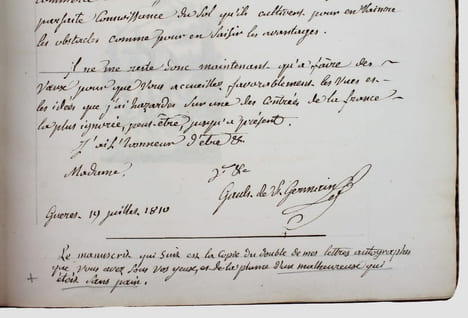 parfaite Connoissance du Sol qu'ils cultivent pour en vaincre
les obstacles comme pour en Saisir les avantages.
il ne me reste donc maintenant qu'a faire des
vœux pour que Vous accueilliez favorablement les vues et
les idées que j'ai hazardés sur une des Contrées de la france
la plus ignorée, peut-être, jusqu'a présent.
J'ai l'honneur d'être &.
Madame.
&c
Gauls. de St. Germain
Gueres. 19 juillet. 1810
Le manuscrit qui Suit est la Copie du double de mes lettres autographes
que Vous avez Sous Vos yeux, et de la plume d'un malheureux qui
étoit Sans pain.
+